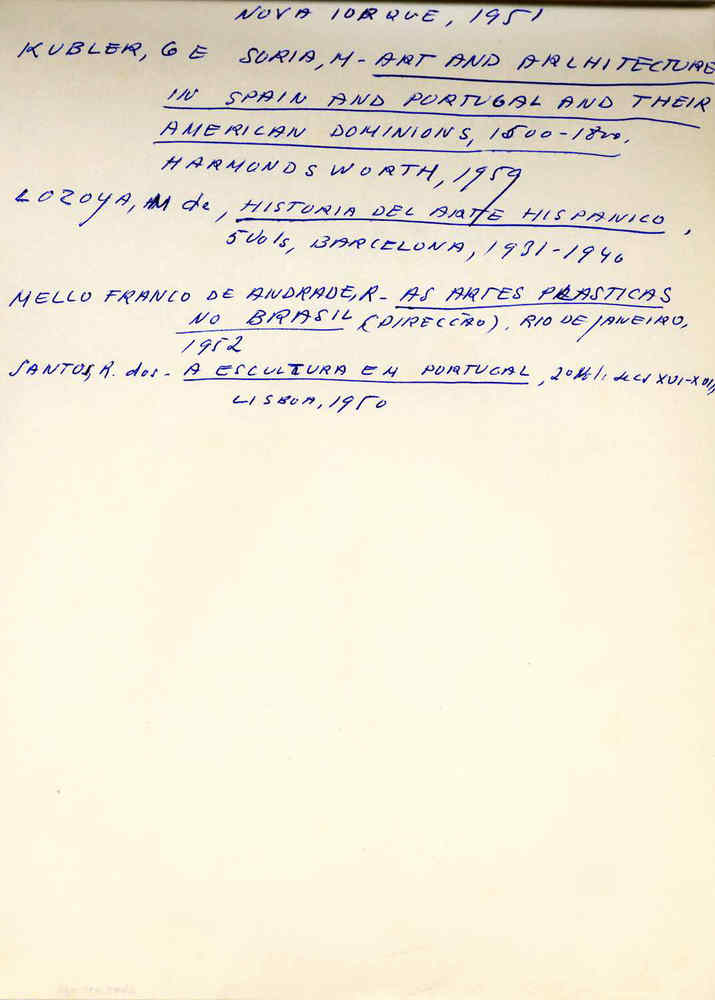 NOVA IORQUE, 1951
KUBLER, G E SORIA, M - ART AND ARCHITECTURE
IN SPAIN AND PORTUGAL AND THEIR
AMERICAN DOMINIONS, 1500-1800.
HARMONDSWORTH, 1959
LOZOYA, M de, HISTORIA DEL ARTE HISPANICO,
5 vols, BARCELONA, 1931-1940
MELLO FRANCO DE ANDRADE, R - AS ARTES PLASTICAS
NO BRASIL (DIRECÇÃO). RIO DE JANEIRO,
1952
SANTOS, R. dos - A ESCULTURA EM PORTUGAL, XVI-XVIII,
LISBOA, 1950